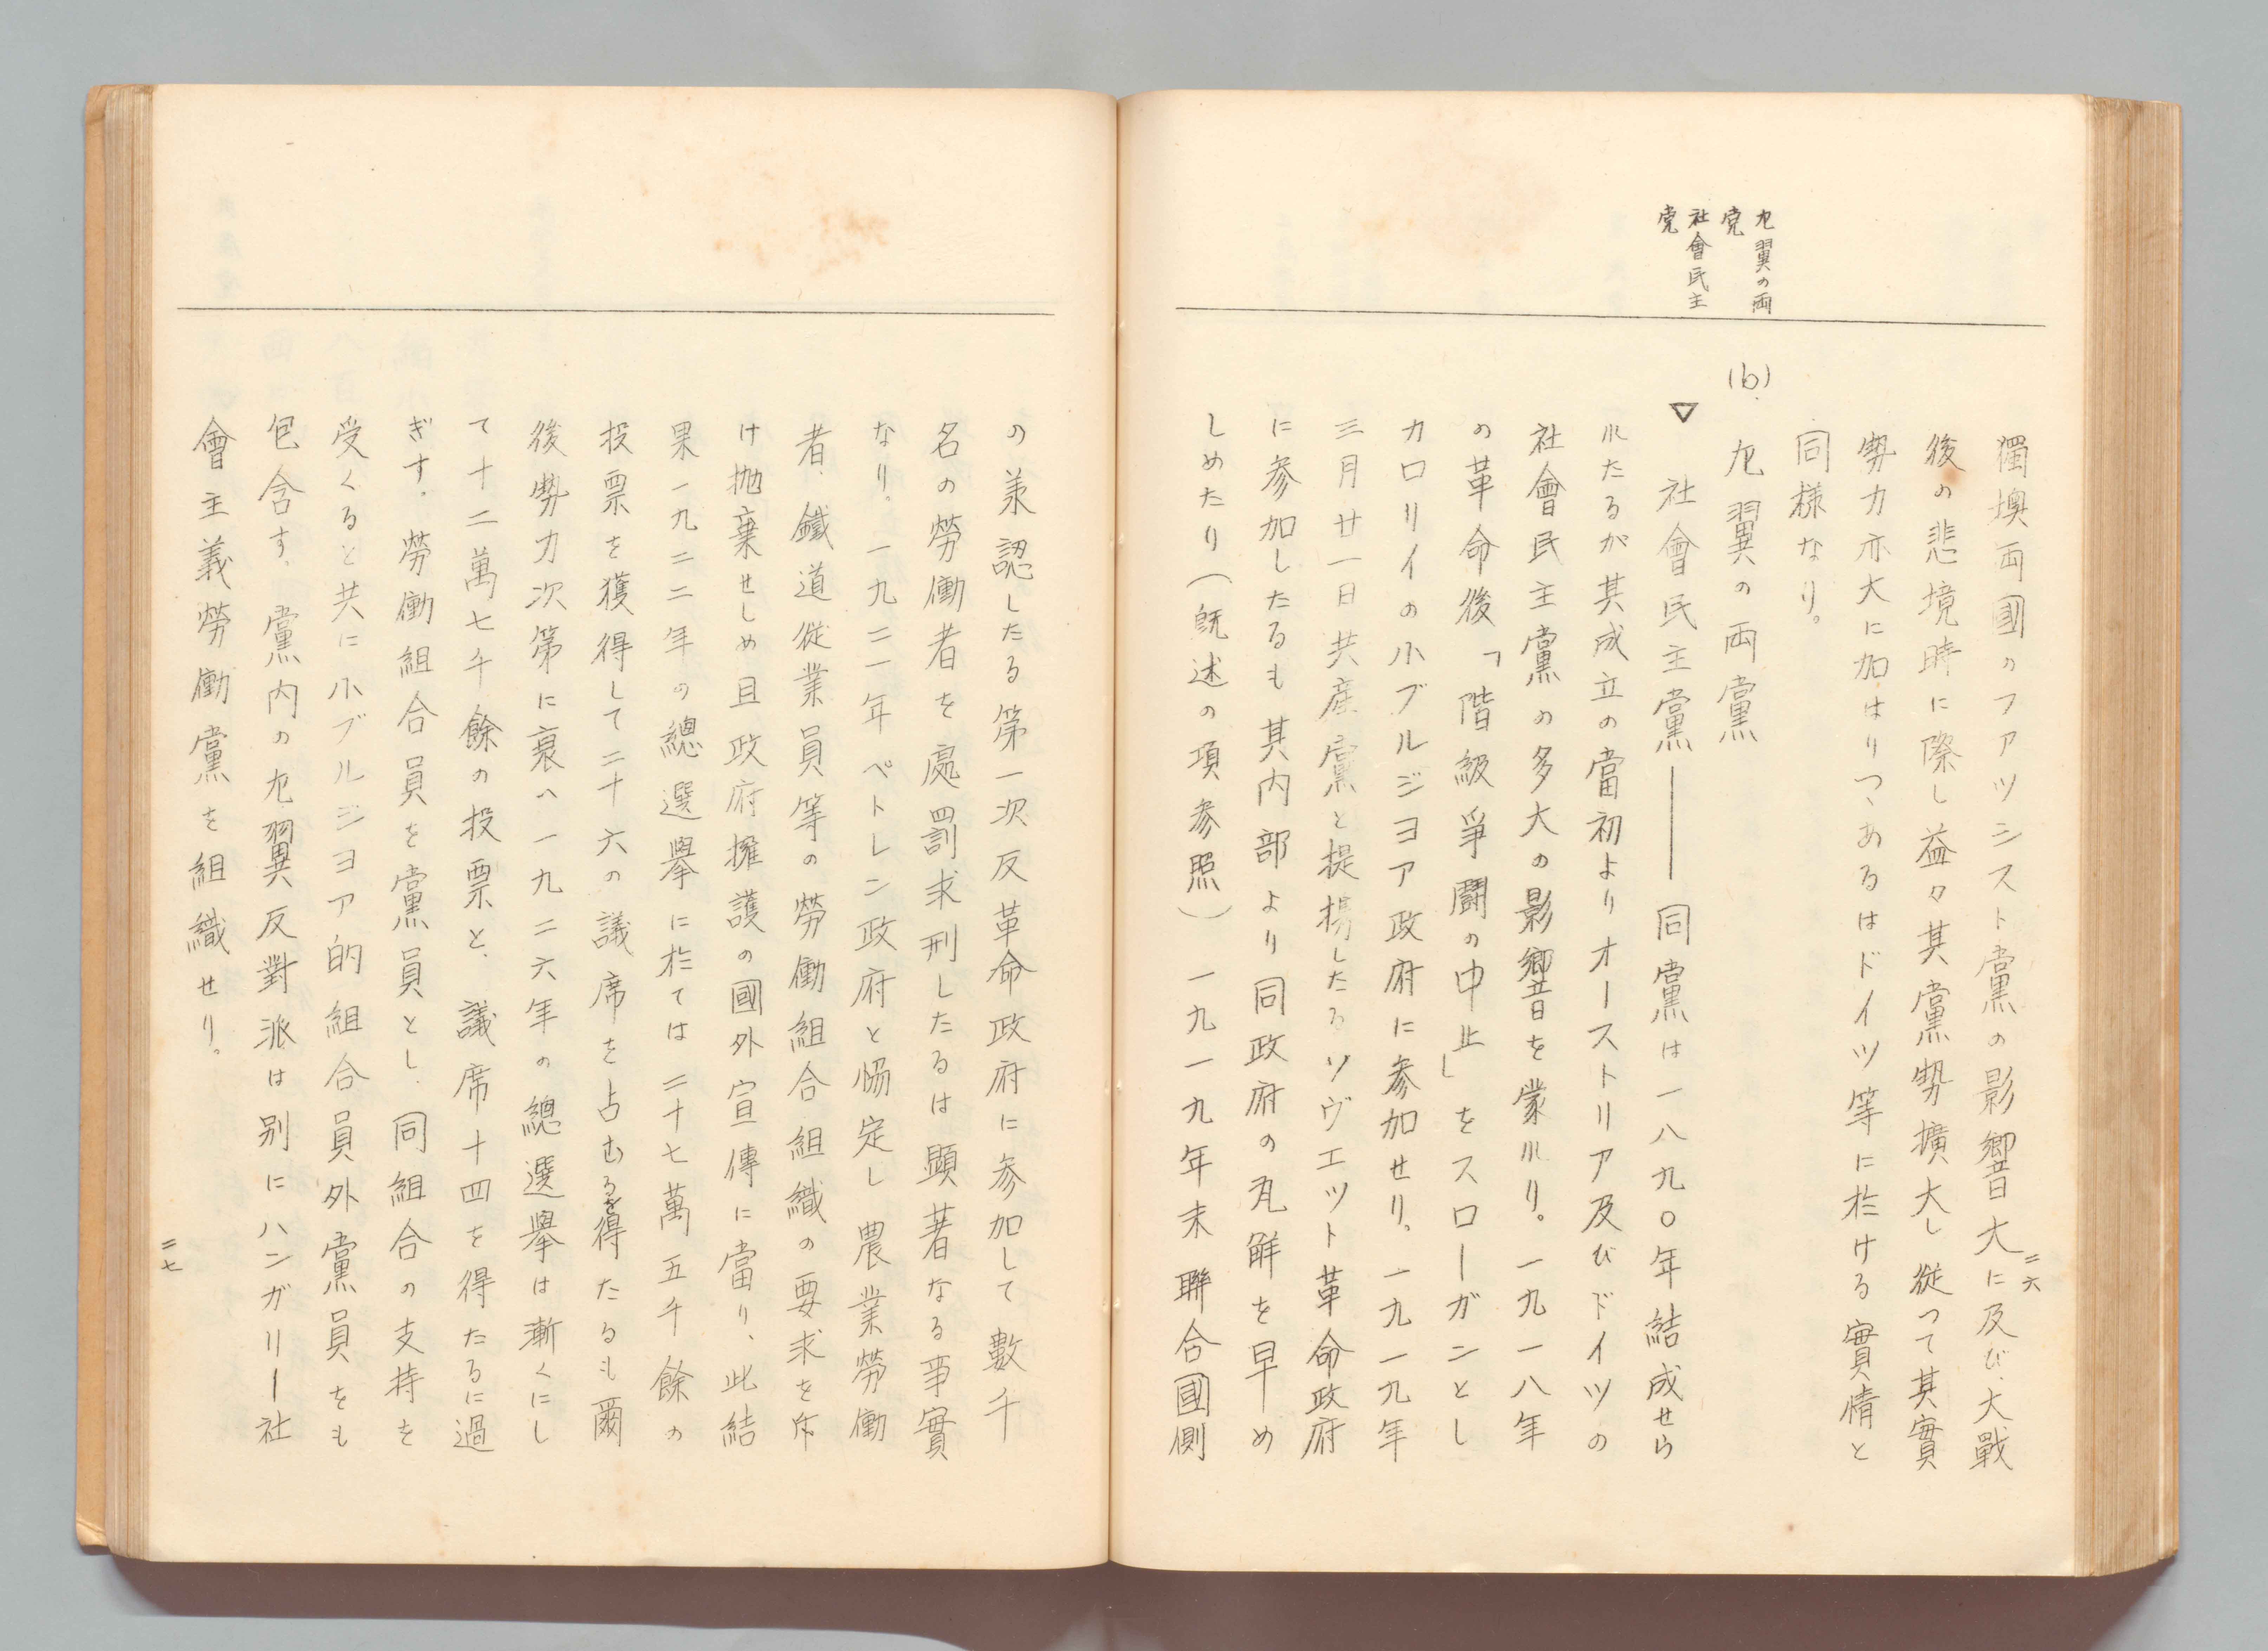 左翼の両
党
社會民主
党
獨墺両國のファッシスト黨の影響大に及び、大戰
後の悲境時に際し益々其黨勢擴大し從つて其實
勢力亦大に加はりつゝあるはドイツ等に於ける實情と
同様なり。
(b) 左翼の両黨
▽ 社會民主黨――同黨は一八九〇年結成せら
れたるが其成立の當初よりオーストリア及びドイツの
社會民主黨の多大の影響を蒙れり。一九一八年
の革命後「階級爭鬪の中止」をスローガンとし
カロリイの小ブルジヨア政府に参加せり。一九一九年
三月廿一日共産黨と提携したるソヴエツト革命政府
に参加したるも其内部より同政府の瓦解を早め
しめたり(既述の項参照)一九一九年末聯合國側
二六
の承認したる第一次反革命政府に参加して數千
名の勞働者を處罰求刑したるは顕著なる事實
なり。一九二一年ペトレン政府と協定し農業勞働
者、鐵道從業員等の勞働組合組織の要求を斥
け抛棄せしめ且政府擁護の國外宣傳に當り、此結
果一九二二年の總選擧に於ては二十七萬五千餘の
投票を獲得して二十六の議席を占むるを得たるも爾
後勢力次第に衰へ一九二六年の總選擧は漸くにし
て十二萬七千餘の投票と、議席十四を得たるに過
ぎす。勞働組合員を黨員とし、同組合の支持を
受くると共に小ブルジヨア的組合員外黨員をも
包含す、黨内の左翼反對派は別にハンガリー社
會主義勞働黨を組織せり。
二七